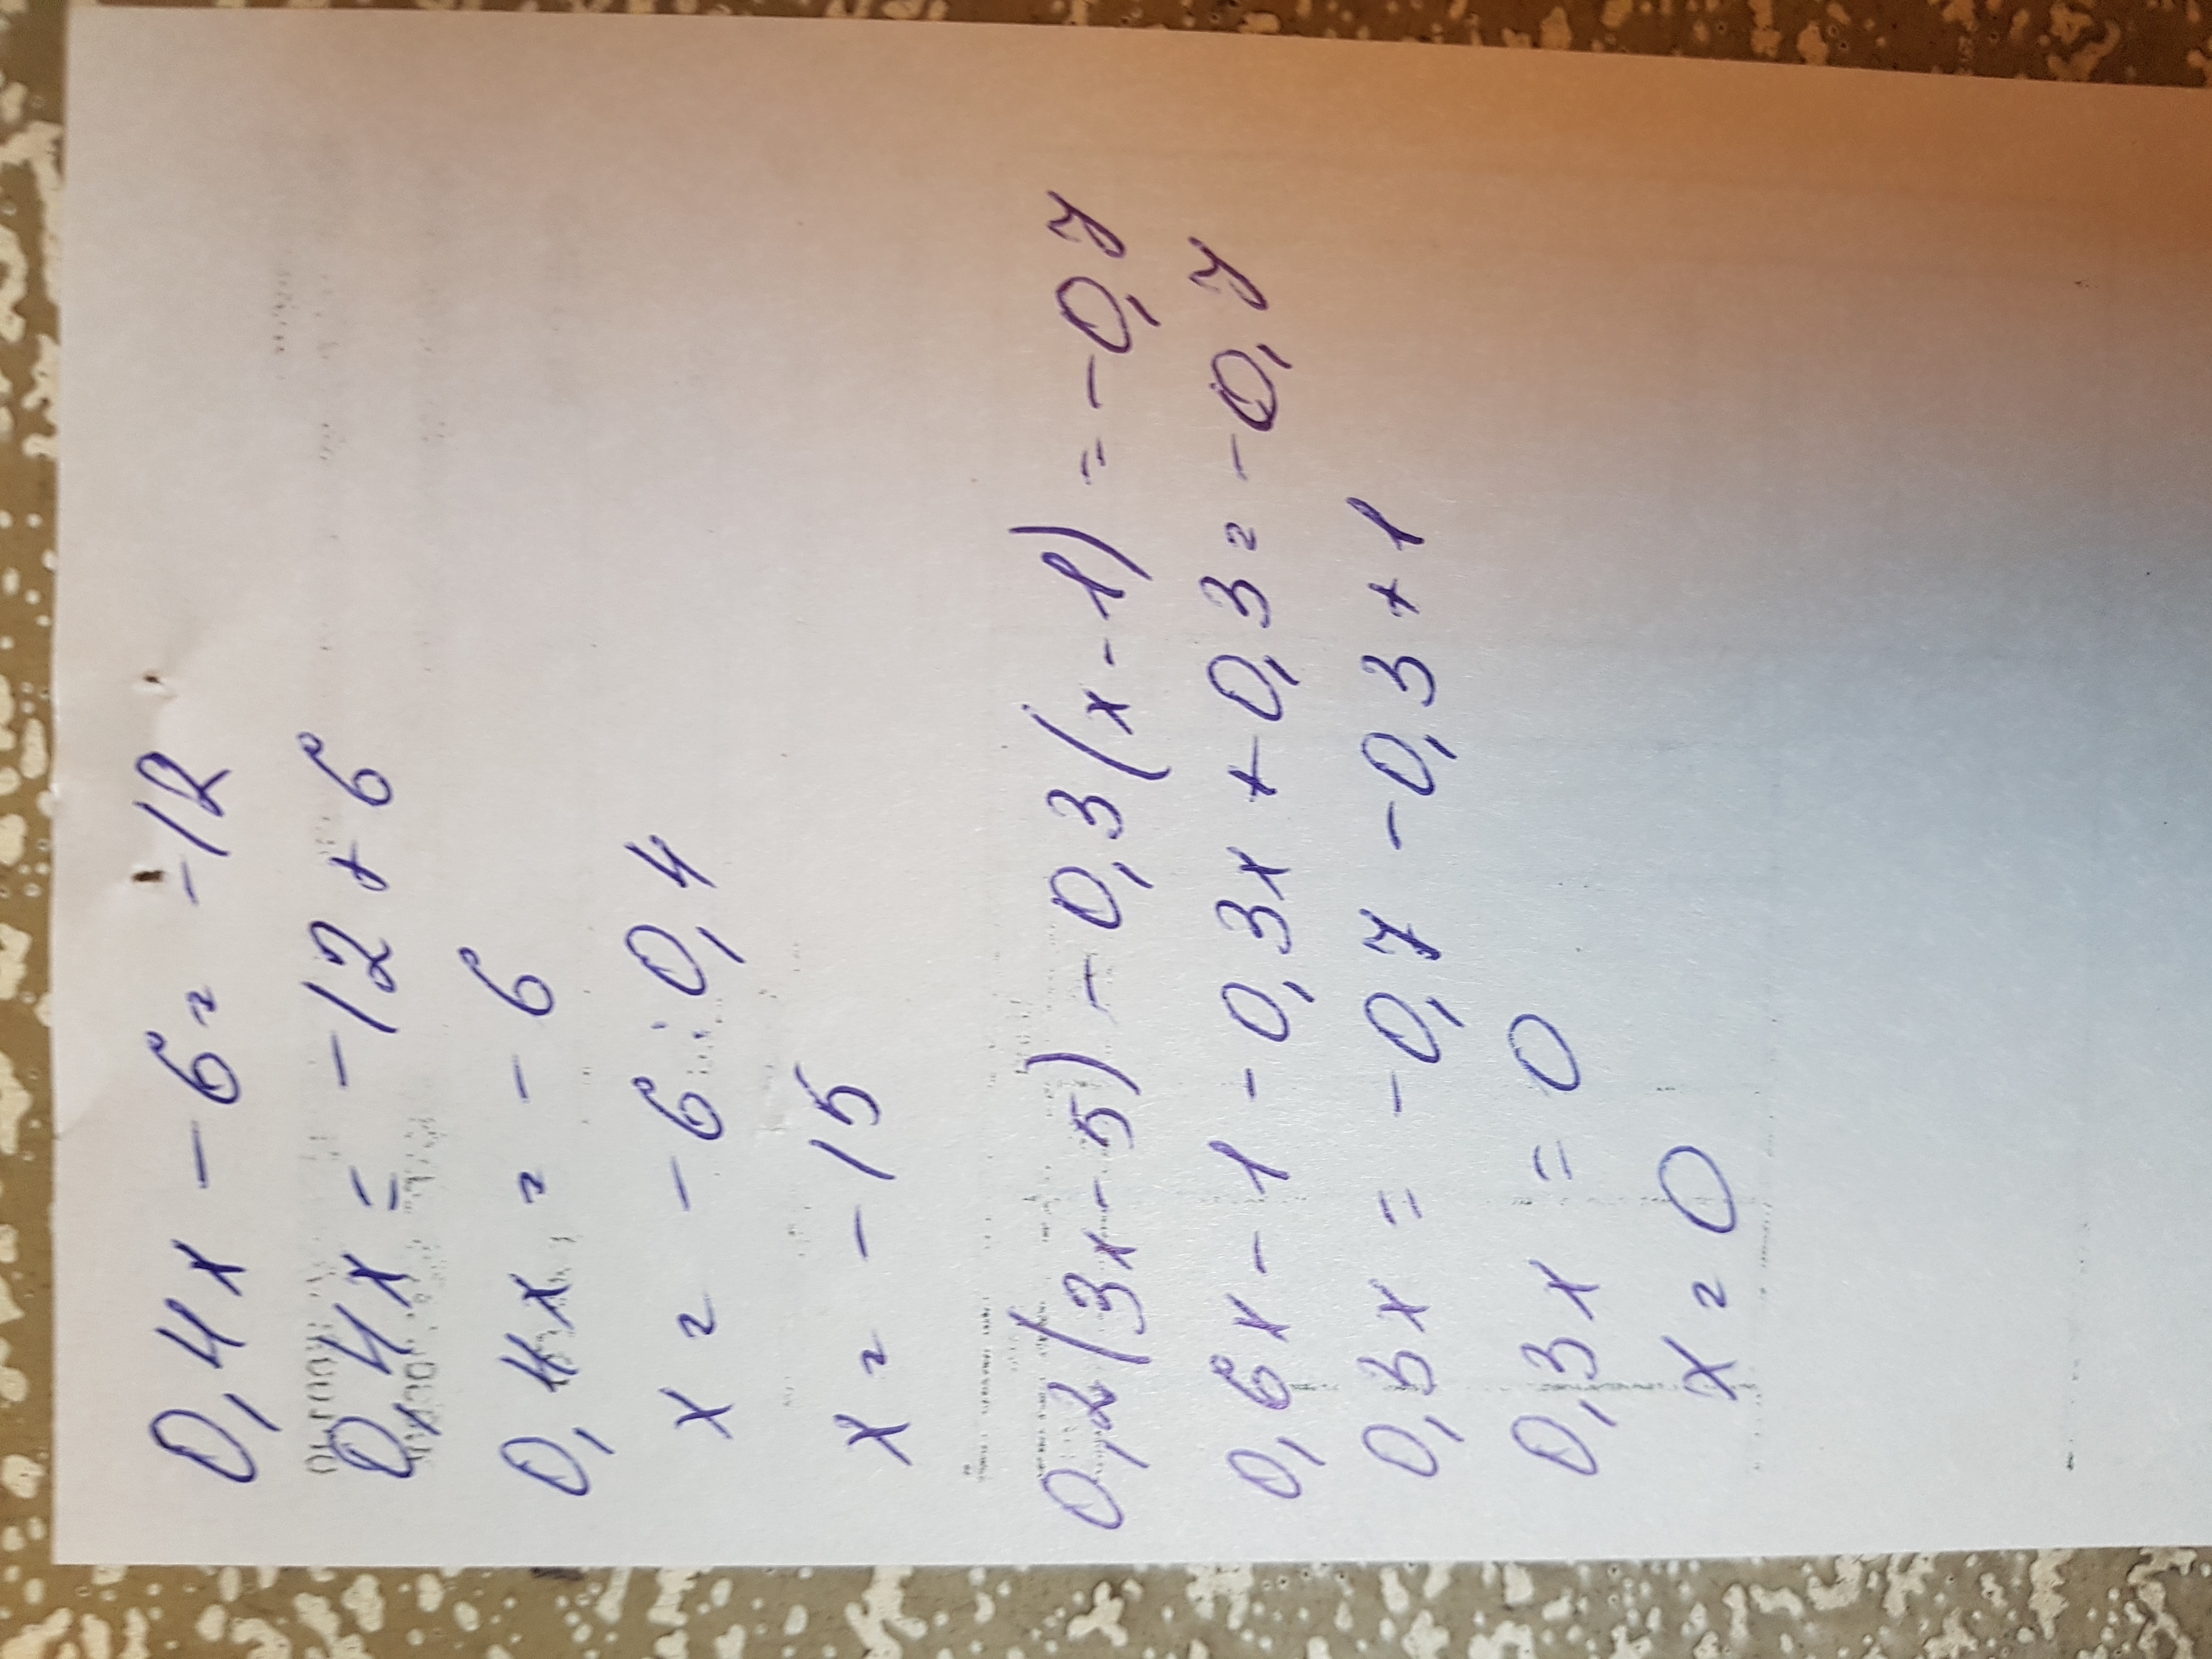 0,4x - 6 = -12
0,4x = -12 + 6
0,4x = -6
x = -6 : 0,4
x = -15
0,2(3x-5) - 0,3(x-1) = -0,7
0,6x - 1 - 0,3x + 0,3 = -0,7
0,3x = -0,7 - 0,3 + 1
0,3x = 0
x = 0